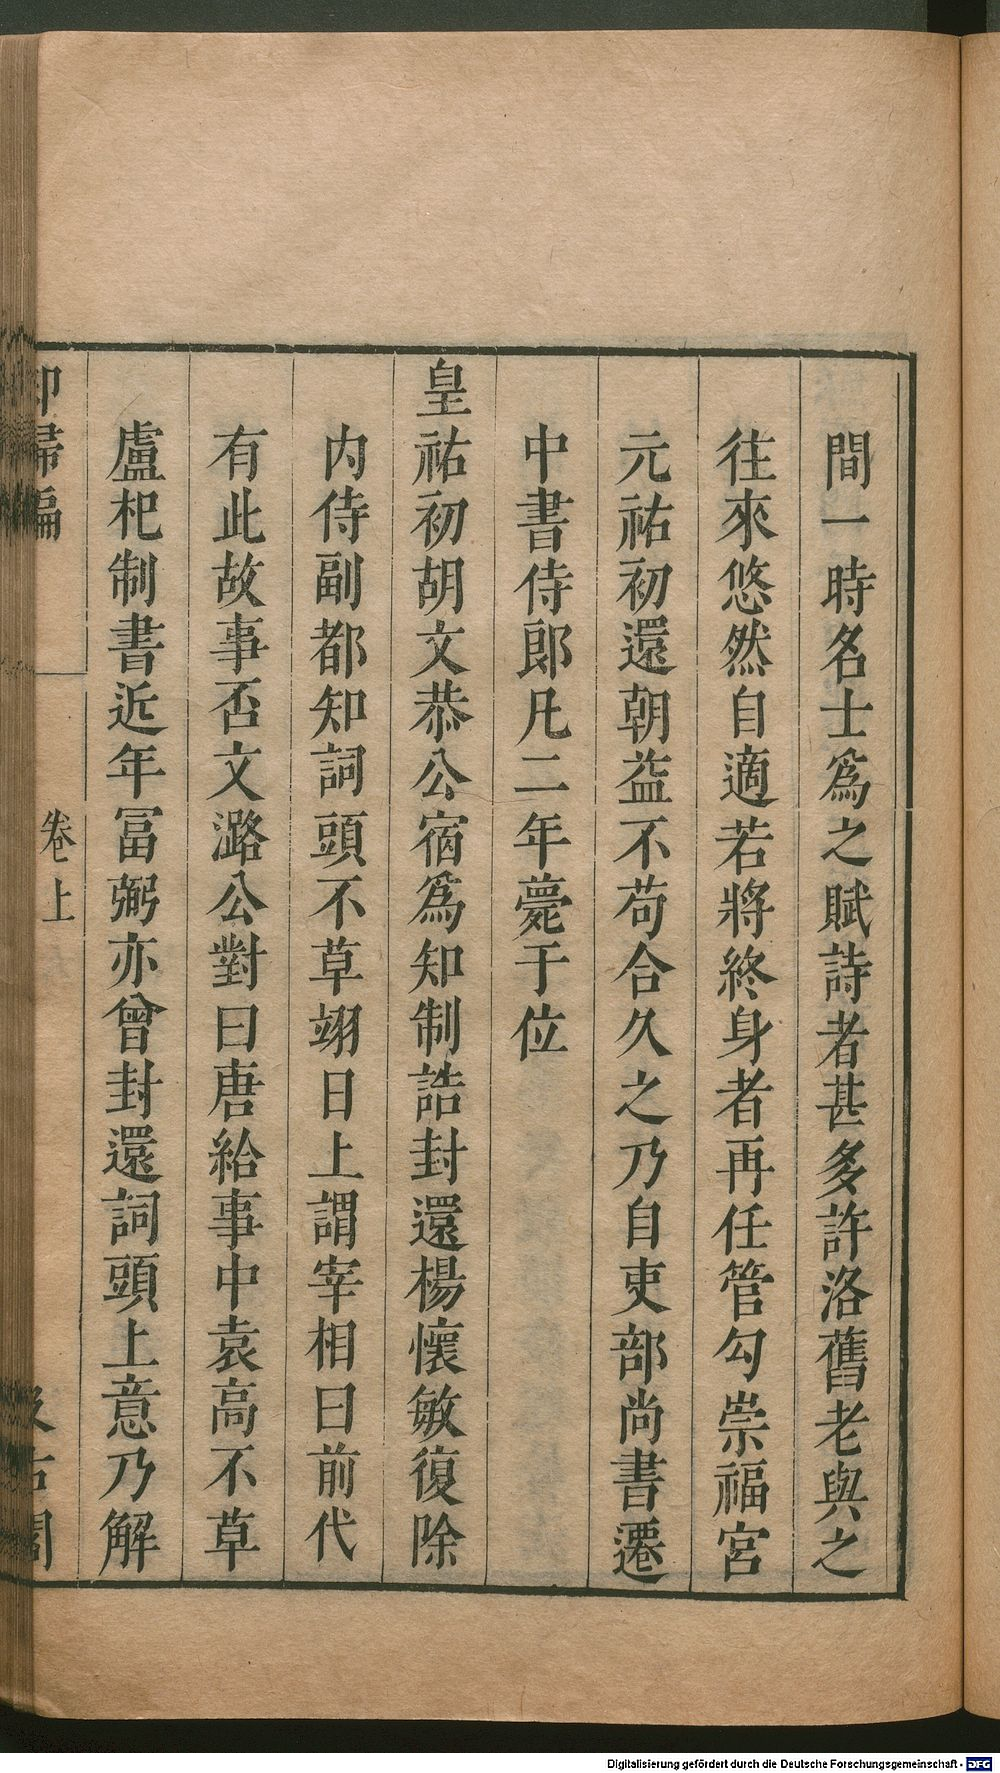 間一時名士爲之賦詩者甚多許洛舊老與之
往來悠然自適若將終身者再任管勾崇福宮
元祐初還朝益不苟合久之乃自吏部尚書遷
中書侍郎凡二年薨于位
皇祐初胡文恭公宿爲知制誥封還楊懷敏復除
内侍副都知詞頭不草翊日上謂宰相曰前代
有此故事否文潞公對曰唐給事中袁高不草
盧杞制書近年冨弼亦曾封還詞頭上意乃解
卷上
Digitalisierung gefördert durch die Deutsche Forschungsgemeinschaft - DFG